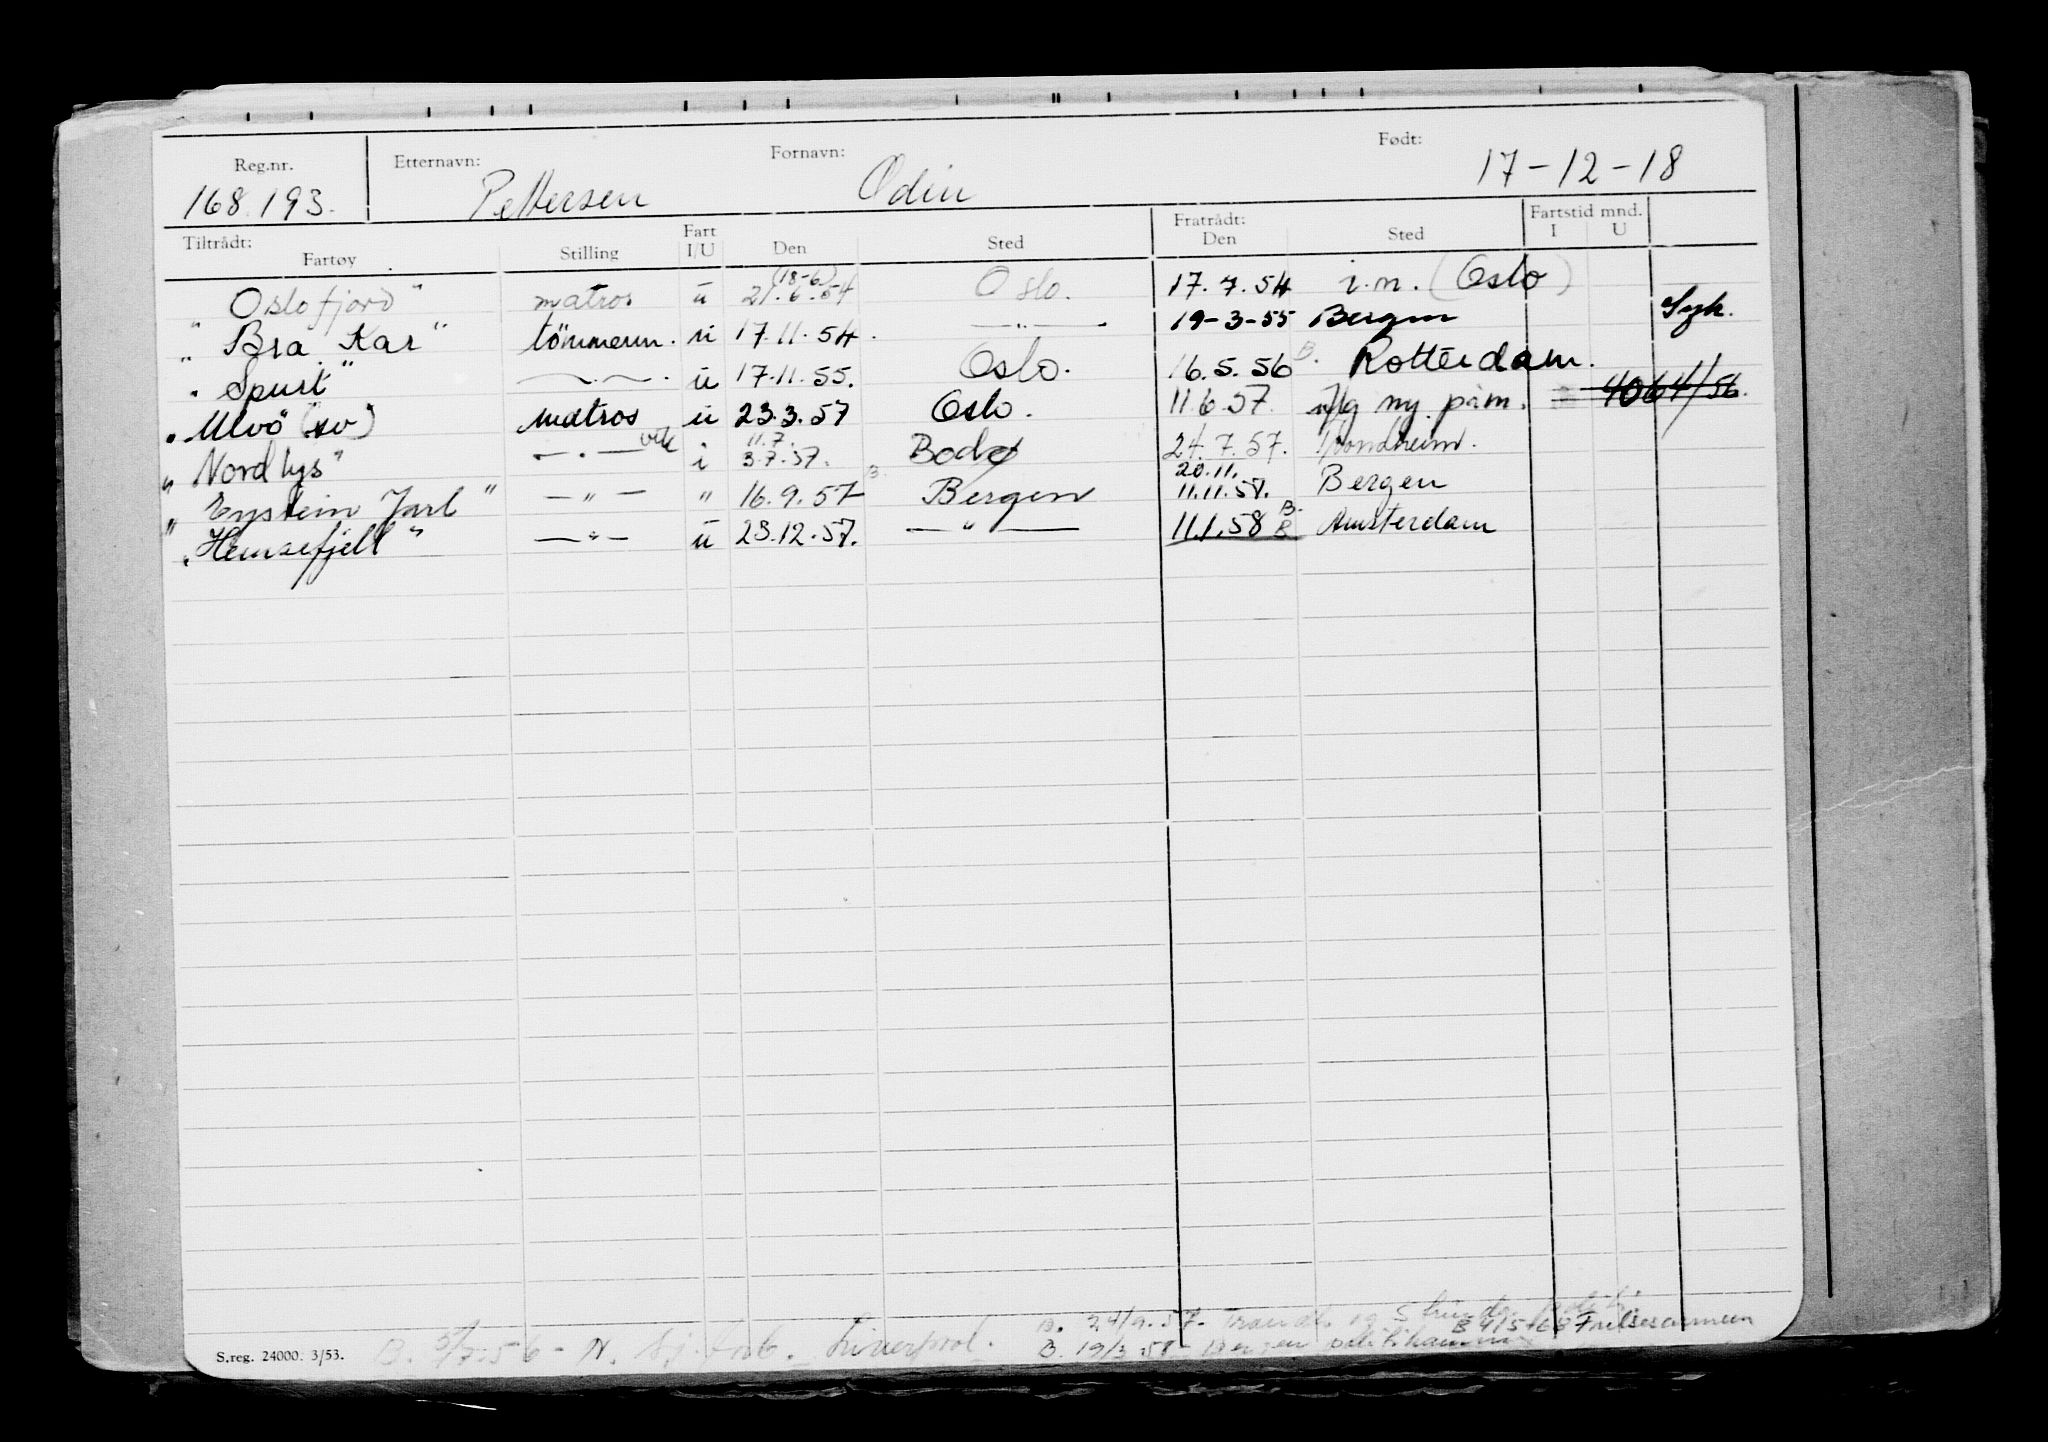 Reg.nr. Etternavn: Fornavn: Født:
168.193. Pettersen Odin 17-12-18
Tiltrådt: Fartøy Stilling Fart I/U Den Sted Fratrådt: Den Sted Fartstid mnd. I U
(18-6)
"Oslofjord" matros u 21.6.54 Oslo. 17.7.54 i.n. (Oslo)
"Bra Kar" tömmerm. u 17.11.54. —"— 19-3-55 Bergen Syk.
"Spurt" —"— u 17.11.55. Oslo. 16.5.56 B. Rotterdam.
4064/56.
"Ulvö" (sv) matros u 23.3.57 Oslo. 11.6.57. ny påm.
11.7.
"Nordlys" —"— vik i 3.7.57. Bodø 24.7.57. Trondheim.
20.11.
"Eystein Jarl" —"— " 16.9.57 B. Bergen 11.11.57. Bergen
"Hemsefjell" —"— u 23.12.57. —"— 11.1.58 B. B Amsterdam
B. 24/9.57. Trondh. og
B 4/5-68 Frelsesarmeen
S.reg. 24000. 3/53. B. 5/7.56 - N. Sj. forb. Liverpool. B. 19/3.58 Bergen politikammer